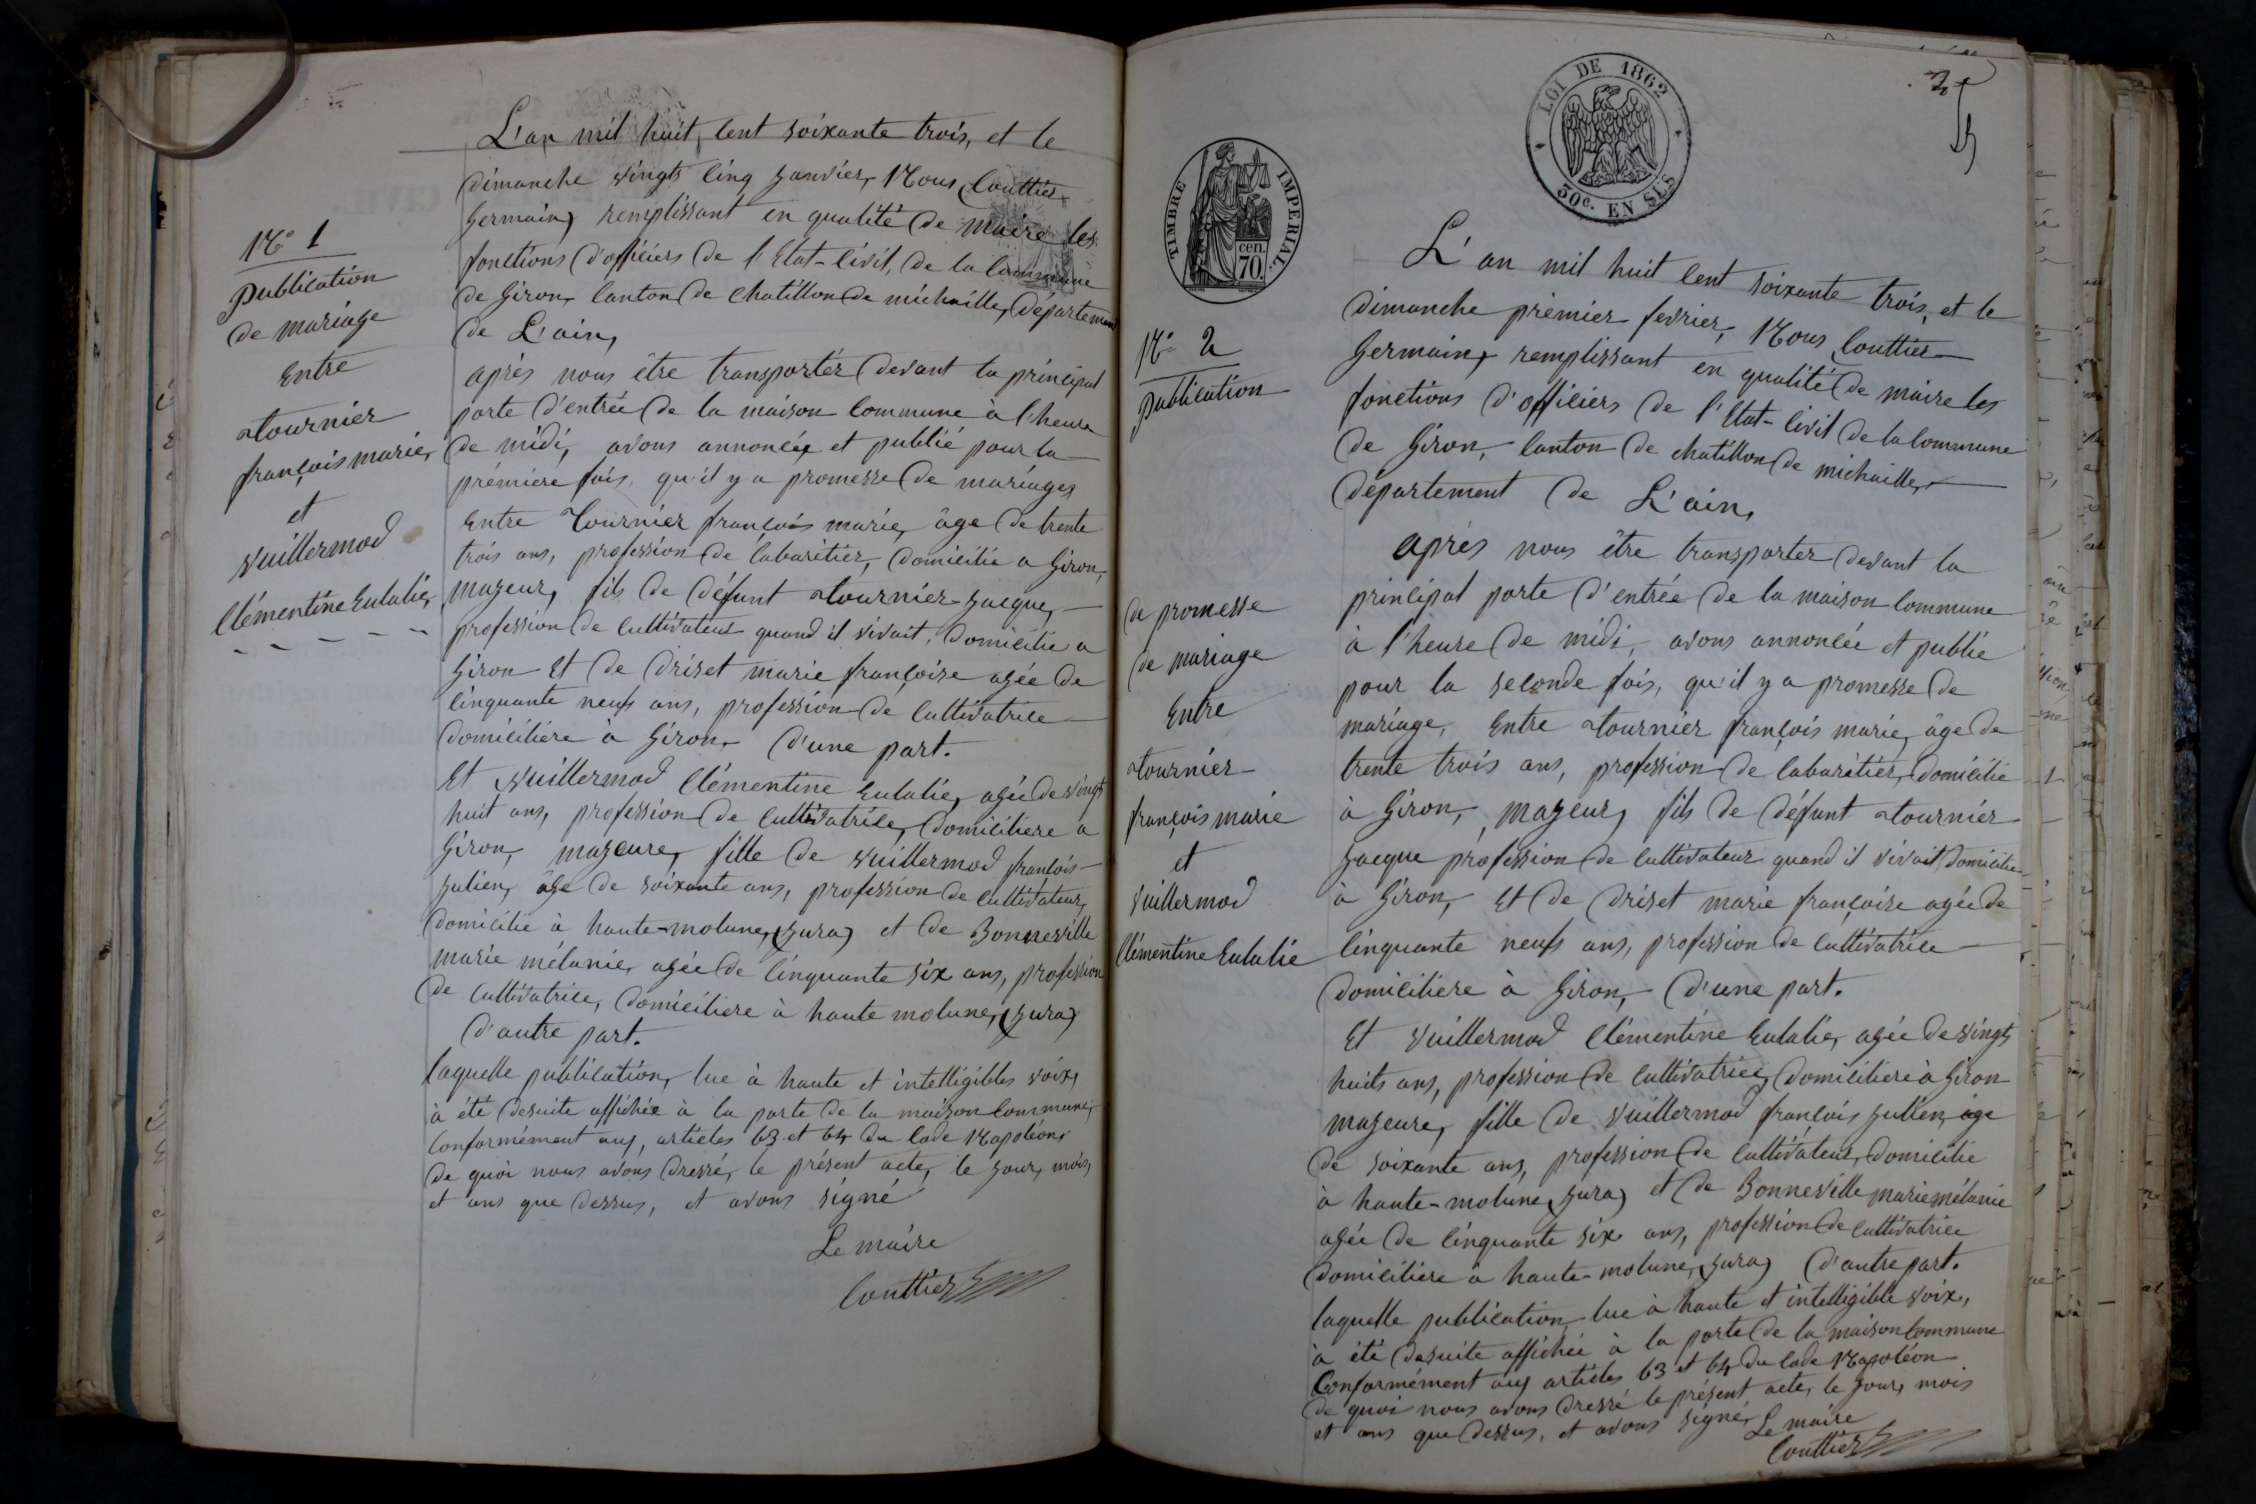 N° 1
Publication
de mariage
Entre
tournier
françois marie,
et
vuillermod
Clémentine Eulalie,
L'an mil huit cent soixante trois, et le
dimanche vingt cinq janvier, Nous Couttier
Germain, remplissant en qualité de maire les
fonctions d'officiers de l'Etat-civil, de la Commune
de Giron, Canton de chatillon de michaille, département
de L'ain,
après nous être transporter devant la principal
porte d'entrée de la maison Commune à l'heure
de midi, avons annoncée et publié pour la
prémiére fois, qu'il y a promesse de mariage,
Entre Tournier françois marie, âge de trente
trois ans, profession de Cabaritier, domicilié a Giron,
majeur, fils de défunt tournier Jacque,
profession de Cultivateur quand il vivait, domicilié a
Giron Et de Driset marie françoise agée de
Cinquante neufs ans, profession de Cultivatrice
domiciliere à Giron, d'une part.
Et vuillermod Clémentine Eulalie, agée de vingt
huit ans, profession de Cultivatrice, domiciliere a
Giron, majeure, fille de vuillermod françois
julien, âge de soixante ans, profession de Cultivateur,
domicilié à haute-molune, (jura) et de Bonneville
marie mélanie, agée de Cinquante six ans, profession
de Cultivatrice, domiciliere à haute molune, (jura)
d'autre part.
laquelle publication, lue à haute et intelligibles voix,
à été desuite affichée à la porte de la maison Commune,
Conformément aux, articles 63 et 64 du Code Napoléon,
de quoi nous avons dressé, le présent acte, le jour, mois,
et ans que dessus, et avons signé
Le maire
Couttier
2
LOI DE 1862
50c. EN SUS
TIMBRE IMPERIAL.
cen.
70.
N° 2
publication
de promesse
de mariage
Entre
tournier
françois marie
et
Vuillermod
Clémentine Eulalie
L'an mil huit Cent soixante trois, et le
dimanche prémier fevrier, Nous Couttier
Germain, remplissant en qualité de maire les
fonctions d'officiers de l'Etat-civil de la Commune
de Giron, Canton de chatillon de michaille,
département de L'ain,
après nous être transporter devant la
principal porte d'entrée de la maison Commune
à l'heure de midi, avons annoncée et publié
pour la seconde fois, qu'il y a promesse de
mariage, Entre tournier françois marie, âge de
trente trois ans, profession de Cabaritier, domicilié
à Giron, majeur, fils de défunt tournier
Jacque profession de Cultivateur quand il vivait, domicilié
à Giron, Et de Driset marie françoise agée de
Cinquante neufs ans, profession de Cultivatrice
domiciliere à Giron, d'une part.
Et Vuillermod Clémentine Eulalie, agée de vingt
huits ans, profession de Cultivatrice, domiciliere à Giron
majeure, fille de vuillermod françois julien, âge
de soixante ans, profession de Cultivateur, domicilié
à haute-molune, (jura) et de Bonneville marie mélanie
agée de Cinquante six ans, profession de Cultivatrice
domiciliere à haute-molune, (jura) d'autre part.
laquelle publication lue à haute et intelligible voix,
à été desuite affichée à la porte de la maison Commune
Conformément aux articles 63 et 64 du Code Napoléon
de quoi nous avons dressé le présent acte, le jour, mois
et ans que dessus, et avons signé, Le maire
Couttier